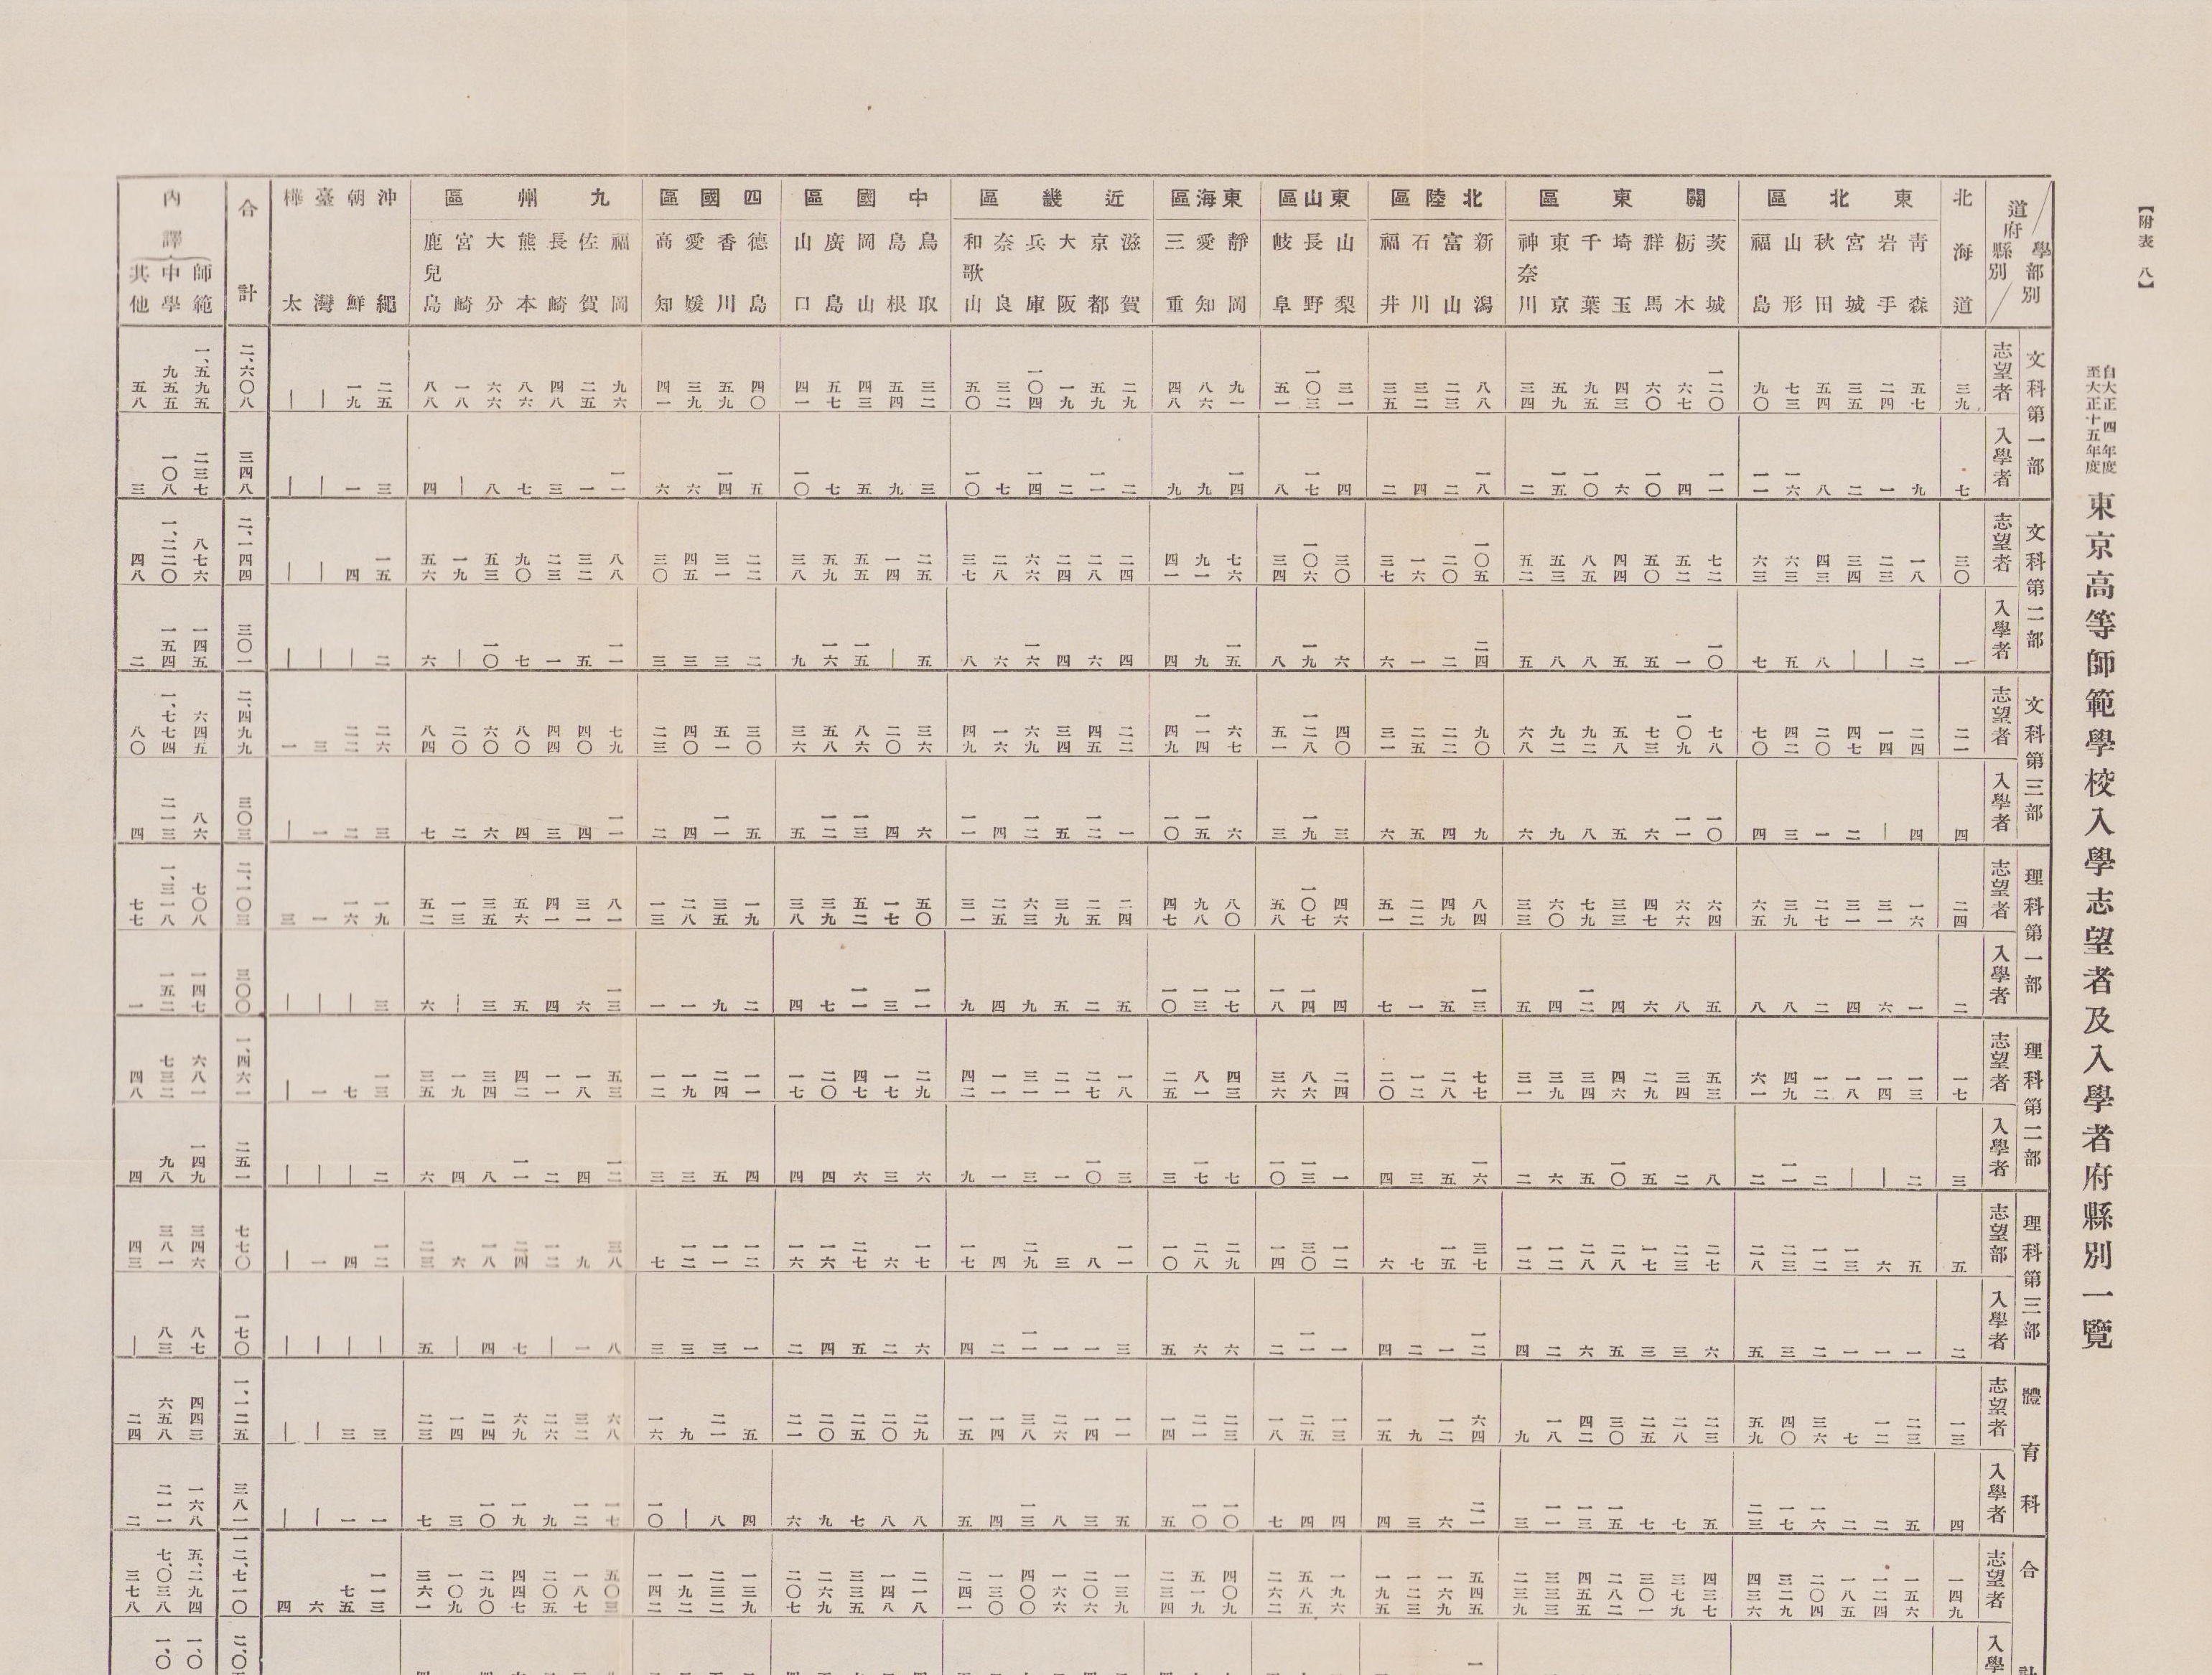 【附表 八】
自大正四年度
至大正十五年度
東京高等師範學校入學志望者及入學者府縣別一覽
學部別
道府縣別
北海道 東北區 關東區 北陸區 東山區 東海區 近畿區 中國區 四國區 九州區 沖繩 朝鮮 臺灣 樺太 合計 內譯
靑森 岩手 宮城 秋田 山形 福島 茨城 栃木 群馬 埼玉 千葉 東京 神奈川 新潟 富山 石川 福井 山梨 長野 岐阜 靜岡 愛知 三重 滋賀 京都 大阪 兵庫 奈良 和歌山 鳥取 島根 岡山 廣島 山口 德島 香川 愛媛 高知 福岡 佐賀 長崎 熊本 大分 宮崎 鹿兒島 師範 中學 其他
文科第一部
志望者 三九 五七 二四 三五 五四 七三 九〇 一二〇 六七 六〇 四三 九五 五九 三四 八八 二三 三二 三五 三一 一〇三 五一 九一 八六 四八 二九 五九 一九 一〇四 三二 五〇 三二 五四 四三 五七 四一 四〇 五九 三九 四一 九六 二五 四八 八六 六六 一八 八八 二五 一九 | | 二、六〇八 一、五九五 九五五 五八
入學者 七 九 一 二 八 一六 一一 一一 四 一〇 六 一〇 一五 二 一八 二 四 二 四 一七 八 一四 九 九 二 一一 二 一四 七 一〇 三 九 五 七 一〇 五 一四 六 六 一一 一 三 七 八 | 四 三 一 | | 三四八 二三七 一〇八 三
文科第二部
志望者 三〇 一八 二三 三四 四三 六三 六三 七二 五二 五〇 四四 八五 五三 五二 一〇五 二〇 一六 三七 三〇 一〇六 三四 七六 九一 四一 二四 二八 二四 六六 二八 三七 二五 一四 五五 五九 三八 二二 三一 四五 三〇 八八 三二 二三 九〇 五三 一九 五六 一五 四 | | 二、一四四 八七六 一、二二〇 四八
入學者 一 二 | | 八 五 七 一〇 一 五 五 八 八 五 二四 二 一 六 六 一九 八 一五 九 四 四 六 四 一六 六 八 五 | 一五 一六 九 二 三 三 三 一一 五 一 七 一〇 | 六 二 | | | 三〇一 一四五 一五四 二
文科第三部
志望者 二一 二四 一四 四七 二〇 四二 七〇 七八 一〇九 七三 五八 九二 九二 六八 九〇 二二 二五 三一 四〇 一二八 五一 六七 一一四 四九 二二 四五 三四 六九 一六 四九 三六 二〇 八六 五八 三六 三〇 五一 四〇 二三 七九 四〇 四四 八〇 六〇 二〇 八四 二六 二二 三 一 二、四九九 六四五 一、七七四 八〇
入學者 四 四 | 二 一 三 四 一〇 一一 六 五 八 九 六 九 四 五 六 三 一九 三 六 一五 一〇 一 一二 五 一二 四 一一 六 四 一三 一二 五 五 一一 四 二 一一 四 三 四 六 二 七 三 二 一 | 三〇三 八六 二一三 四
理科第一部
志望者 二四 一六 三一 三一 二七 三九 六五 六四 六六 四七 三三 七九 六〇 三三 八四 四九 二二 五一 四六 一〇七 五八 八〇 九八 四七 二四 二五 三九 六三 二五 三一 五〇 一七 五二 三九 三八 一九 三五 二八 一三 八一 三一 四一 五六 三五 一三 五二 九 一六 一 三 二、一〇三 七〇八 一、三一八 七七
入學者 二 一 六 四 二 八 八 五 八 六 四 一二 四 五 一三 五 一 七 四 一四 一八 一七 一三 一〇 五 二 五 九 四 九 一一 一 一一 七 四 二 九 一 一 一三 六 四 五 三 | 六 三 | | | 三〇〇 一四七 一五二 一
理科第二部
志望者 一七 一三 一四 一八 一二 四九 六一 五三 三四 二九 四六 三四 三九 三一 七七 二八 一二 二〇 二四 八六 三六 四三 八一 二五 一八 二七 二一 三一 一一 四二 二九 一七 四七 二〇 一七 一一 二四 一九 一二 五三 一八 一一 四二 三四 一九 三五 一三 七 一 | 一、四六一 六八一 七三二 四八
入學者 三 二 | | 二 一一 二 八 二 五 一〇 五 六 二 一六 五 三 四 一 一三 一〇 七 一七 三 三 一〇 一 三 一 九 六 三 六 四 四 四 五 三 三 一二 四 二 一一 八 四 六 二 | | | 二五一 一四九 九八 四
理科第三部
志望部 五 五 六 一三 一二 二三 二八 二七 二三 一七 二八 二八 一二 一二 三七 一五 七 六 一二 三〇 一四 二九 二八 一〇 一一 八 三 二九 四 一七 一七 六 二七 一六 一六 一二 一一 一二 七 三八 九 一二 二四 一八 六 二三 一二 四 一 | 七七〇 三四六 三八一 四三
入學者 二 一 一 一 二 三 五 六 三 三 五 六 二 四 一二 一 二 四 一 一一 二 六 六 五 三 一 一 一一 二 四 六 二 五 四 二 一 三 三 三 八 一 | 七 四 | 五 | | | | 一七〇 八七 八三 |
體育科
志望者 一三 二三 一二 七 三六 四〇 五九 二三 二八 二五 三〇 四二 一八 九 六四 一二 九 一五 一三 二五 一八 二三 二一 一四 一一 一四 二六 三八 一四 一五 二九 二〇 二五 二〇 二一 五 二一 九 一六 六八 三二 二六 六九 二四 一四 二三 三 三 | | 一、一二五 四四三 六五八 二四
入學者 四 五 二 二 一六 一七 二三 五 七 七 一五 一三 一一 三 二一 六 三 四 四 四 七 一〇 一〇 五 五 三 八 一三 四 五 八 八 七 九 六 四 八 | 一〇 一七 一二 九 一九 一〇 三 七 一 一 | | 三八一 一六八 二一一 二
合計
志望者 一四九 一五六 一二四 一八五 二〇四 三二九 四三六 四三七 三七九 三〇一 二八二 四五五 三三三 二三九 五四五 一六九 一二三 一九五 一九六 五八五 二六二 四〇九 五一九 二三四 一三九 二〇六 一六六 四〇〇 一三〇 二四一 二一八 一四八 三三五 二六九 二〇七 一三九 二三二 一九二 一四二 五〇三 一八七 二〇五 四四七 二九〇 一〇九 三六一 一一三 七五 六 四 一二、七一〇 五、二九四 七、〇三八 三七八
入學